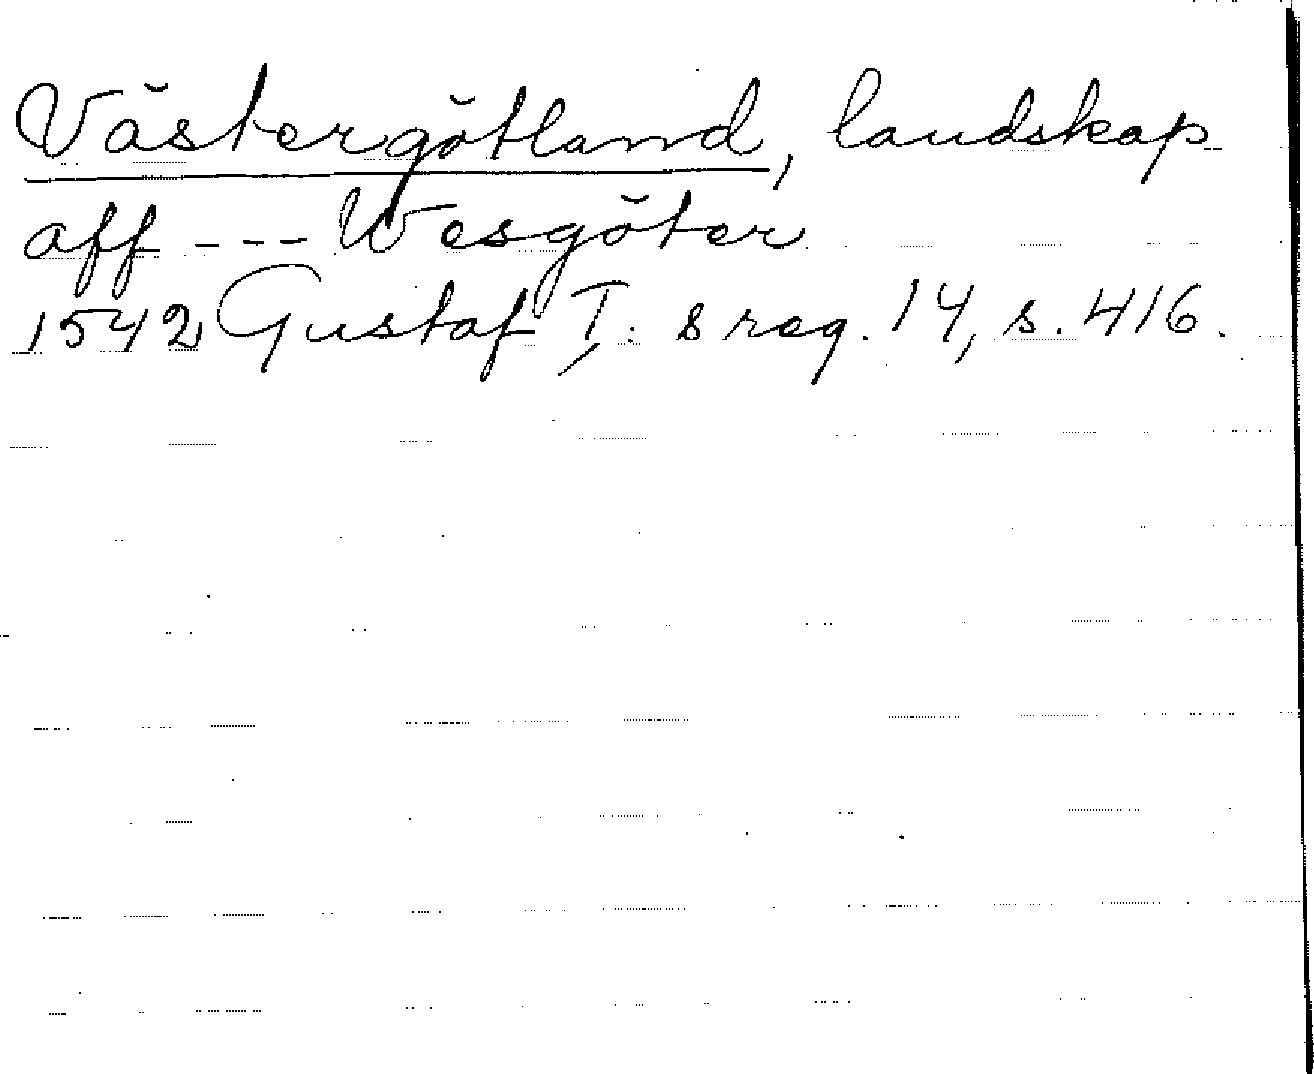 Västergötland, landskap
aff --- Wesgöter
1542 Gustaf I: s reg. 14, s. 416.